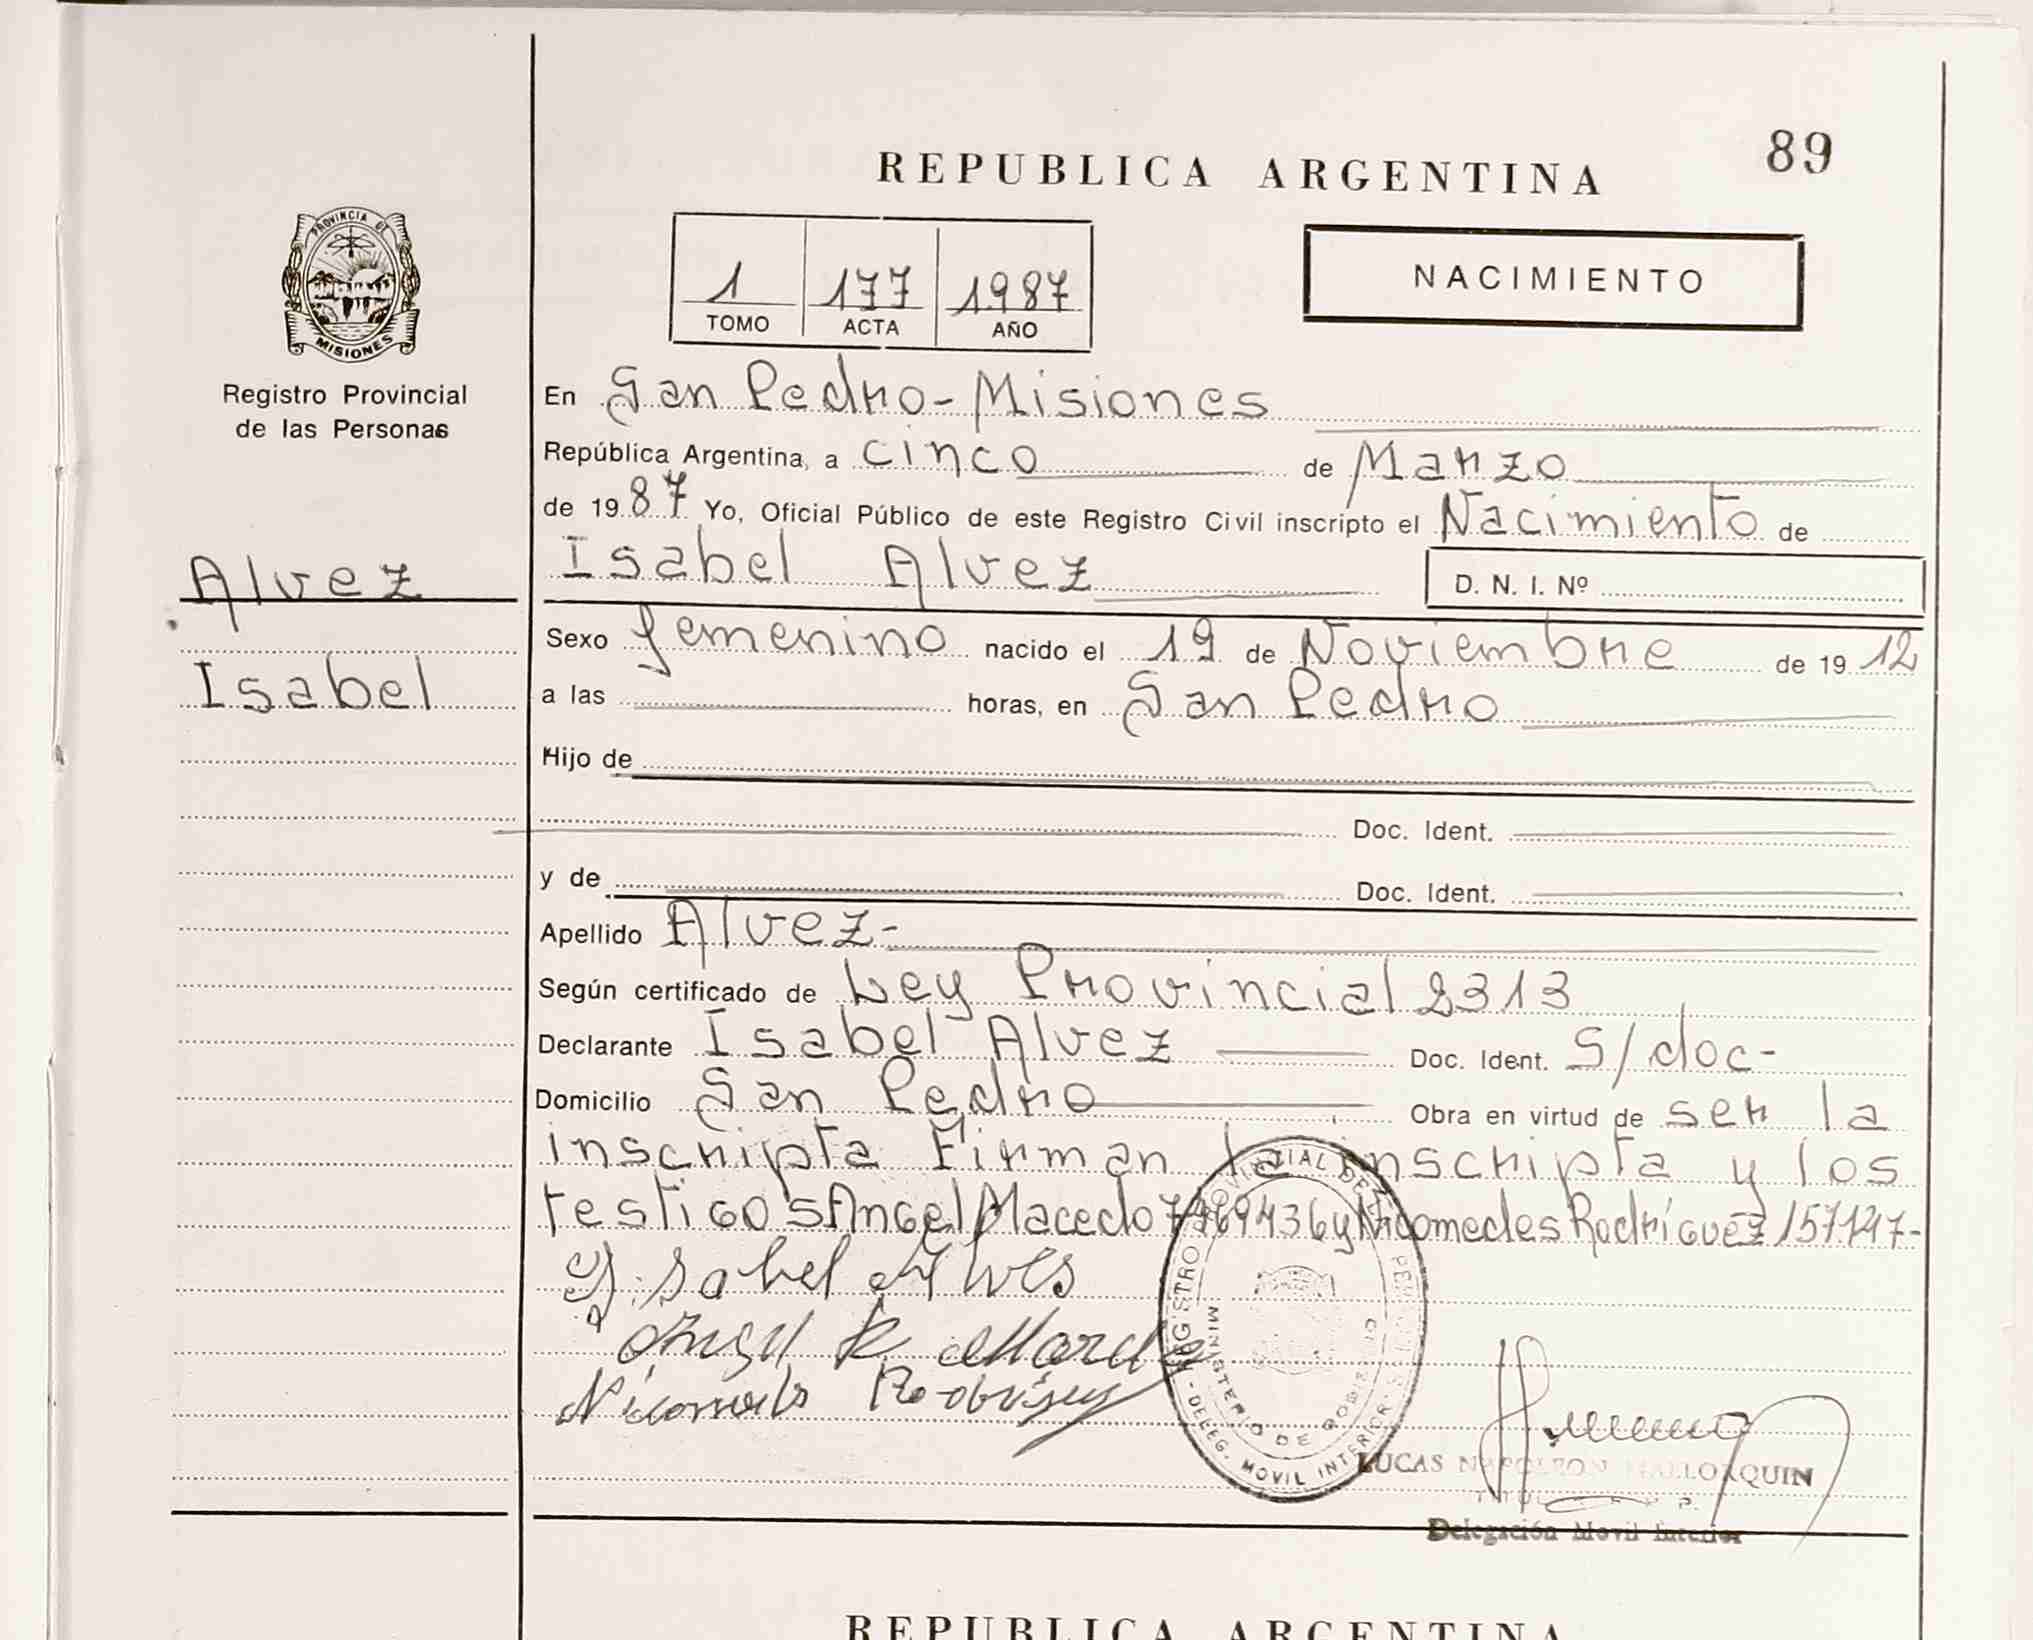 REPUBLICA ARGENTINA
89
PROVINCIA DE
MISIONES
Registro Provincial
de las Personas
1 177 1987
TOMO ACTA AÑO
NACIMIENTO
En San Pedro - Misiones
República Argentina, a cinco de Marzo
de 1987 Yo, Oficial Público de este Registro Civil inscripto el Nacimiento de
Isabel Alvez D. N. I. Nº
Alvez
Isabel
Sexo femenino nacido el 19 de Noviembre de 19 12
a las horas, en San Pedro
Hijo de
Doc. Ident.
y de Doc. Ident.
Apellido Alvez-
Según certificado de Ley Provincial 2313
Declarante Isabel Alvez Doc. Ident. S/doc-
Domicilio San Pedro Obra en virtud de ser la
inscripta Firman la inscripta y los
testigos Angel Macedo y Nicomedes Rodríguez 157147-
Isabel Alves
Angel R
Nicomedes
REGISTRO PROVINCIAL DE
MINISTERIO DE GOBIERNO
DELEG. MOVIL INTERIOR
LUCAS NAPOLEON MALLORQUIN
Delegación Movil Interior
REPUBLICA ARGENTINA